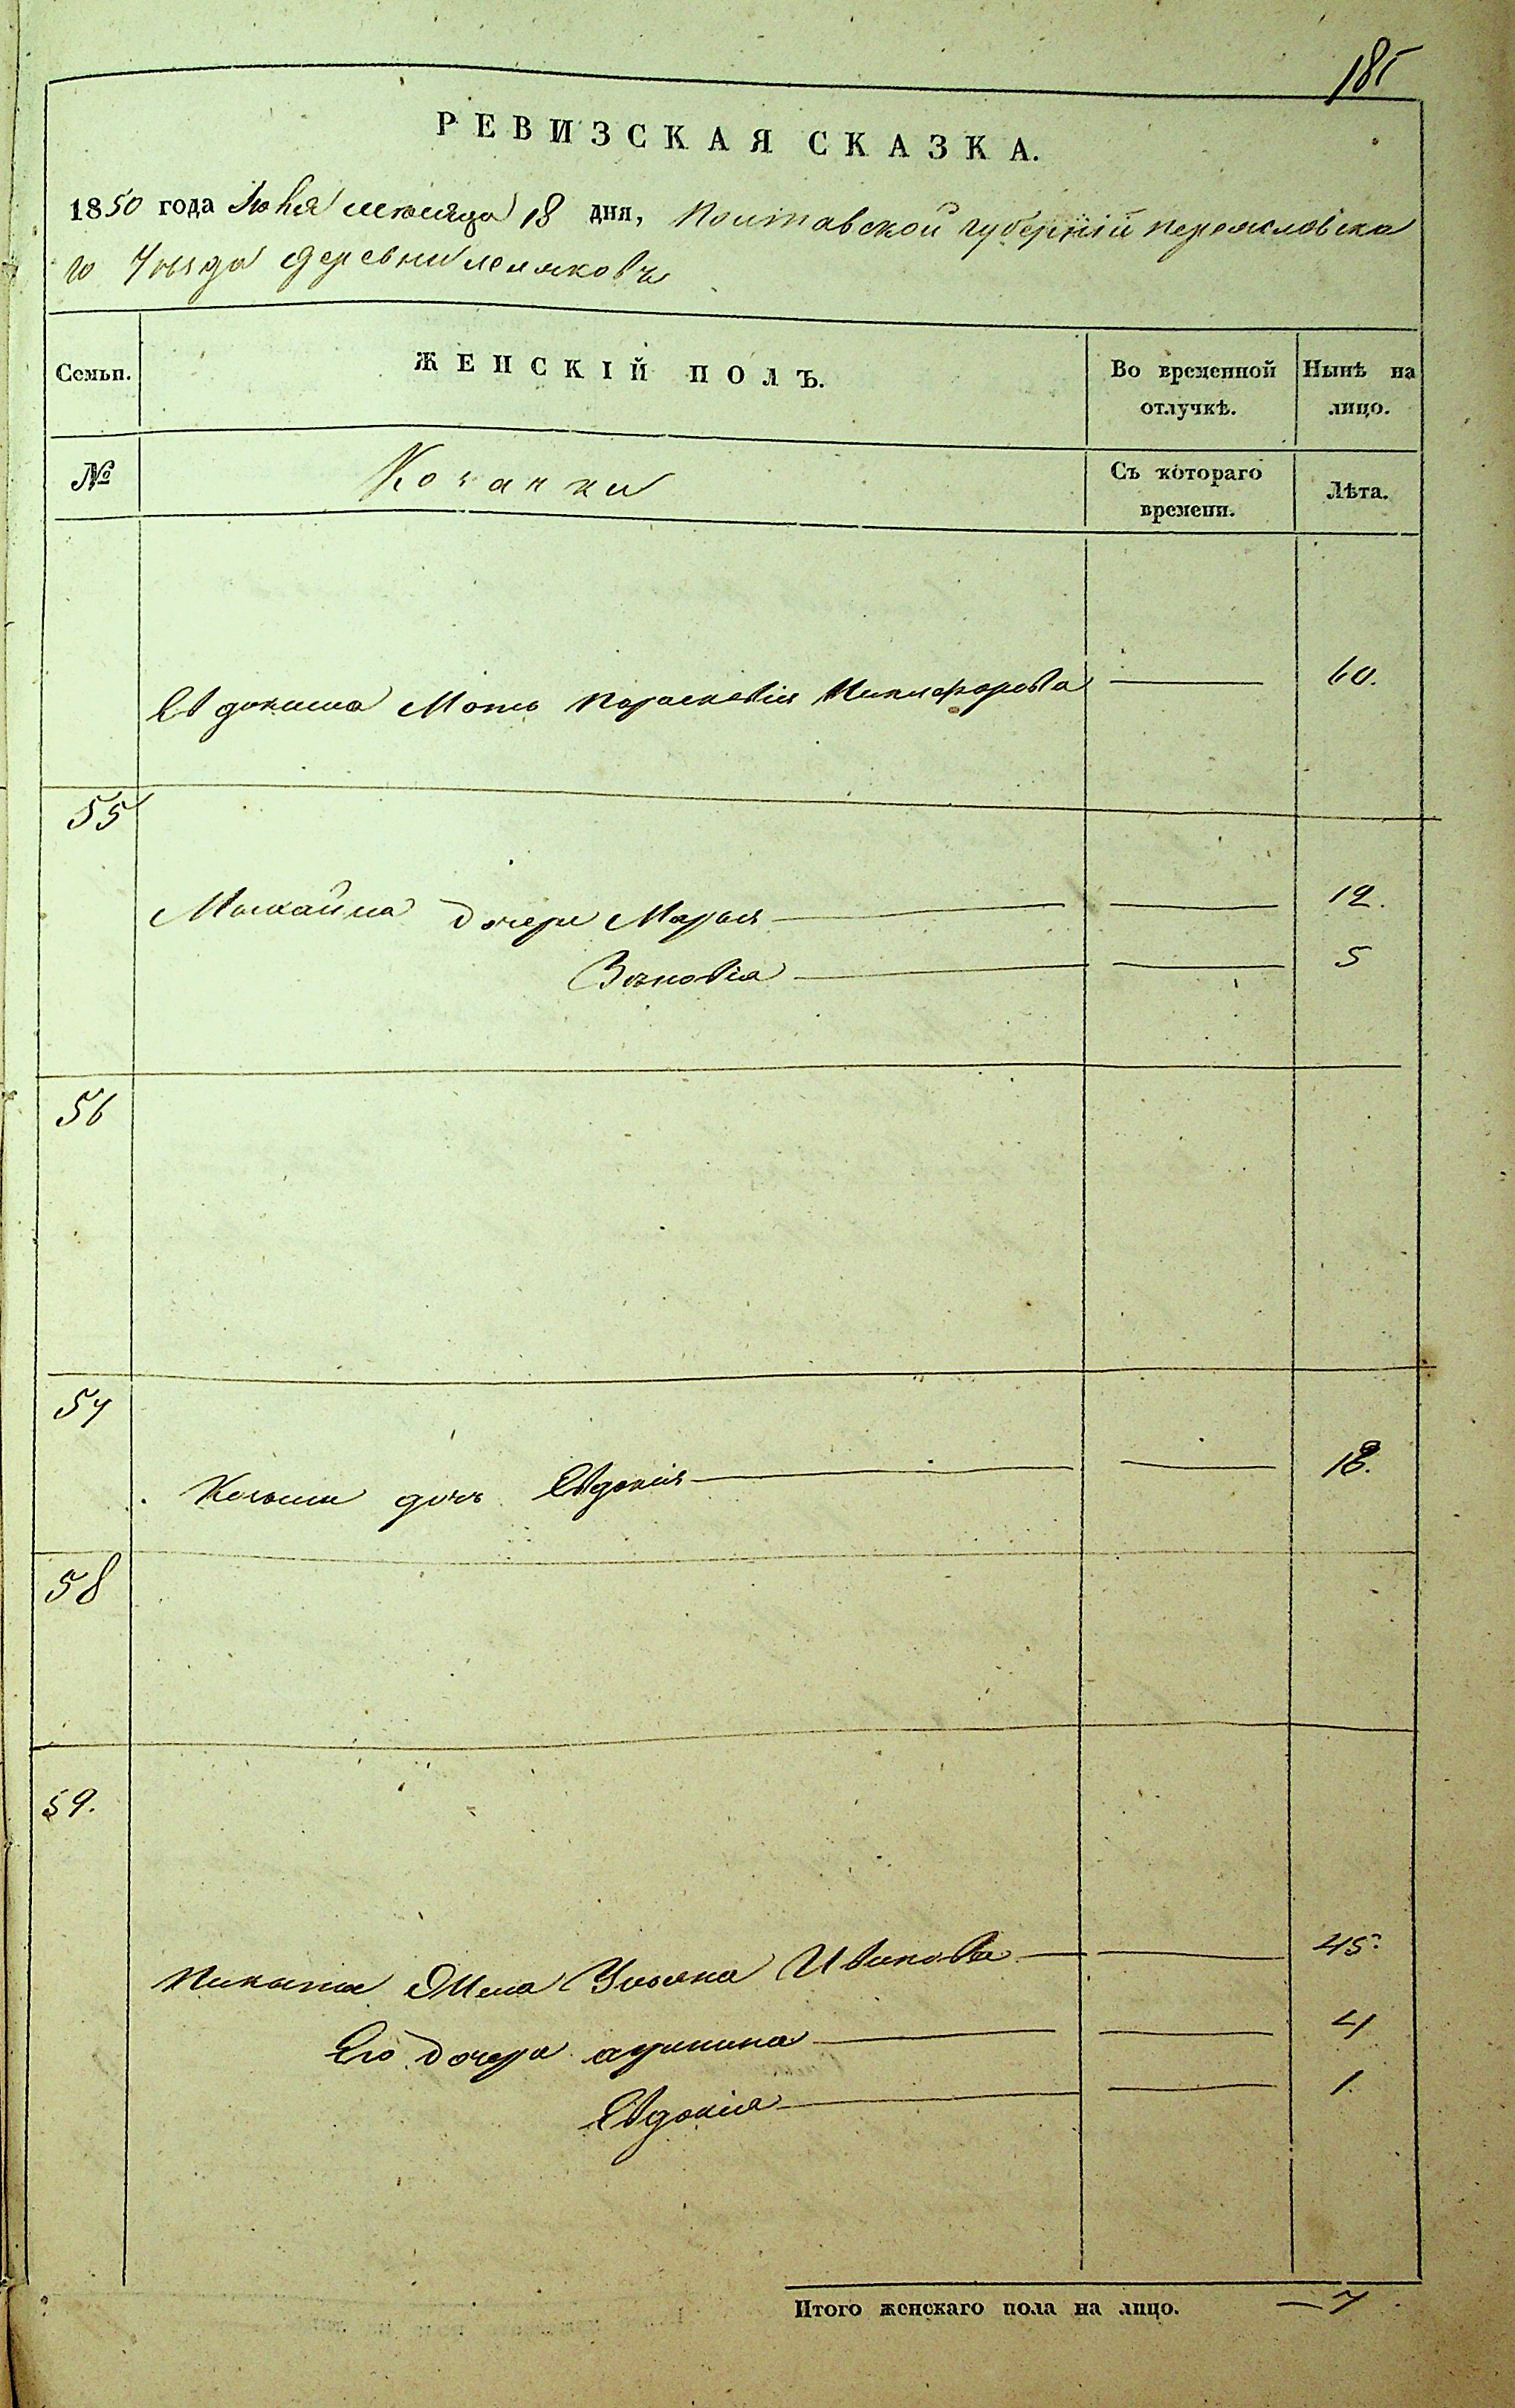 185
РЕВИЗСКАЯ СКАЗКА.
1850 года Июня месяца 18 дня, Полтавской губерніи переяславска
го Уезда деревни лемяковъ
Семьи. ЖЕНСКІЙ ПОЛЪ. Во временной отлучкѣ. Нынѣ на лицо.
№ Козачки Съ котораго времени. Лѣта.
Евдокима Мать Параскевія Никифорова 60.
55
Михайла дочери Марья 12.
Зѣновіа 5
56
57
Козьми дочь Евдокія 18.
58
59.
Никиты Жена Ульяна Иванова 45.
Его дочери 4
Евдокіа 1.
Итого женскаго пола на лицо. — 7